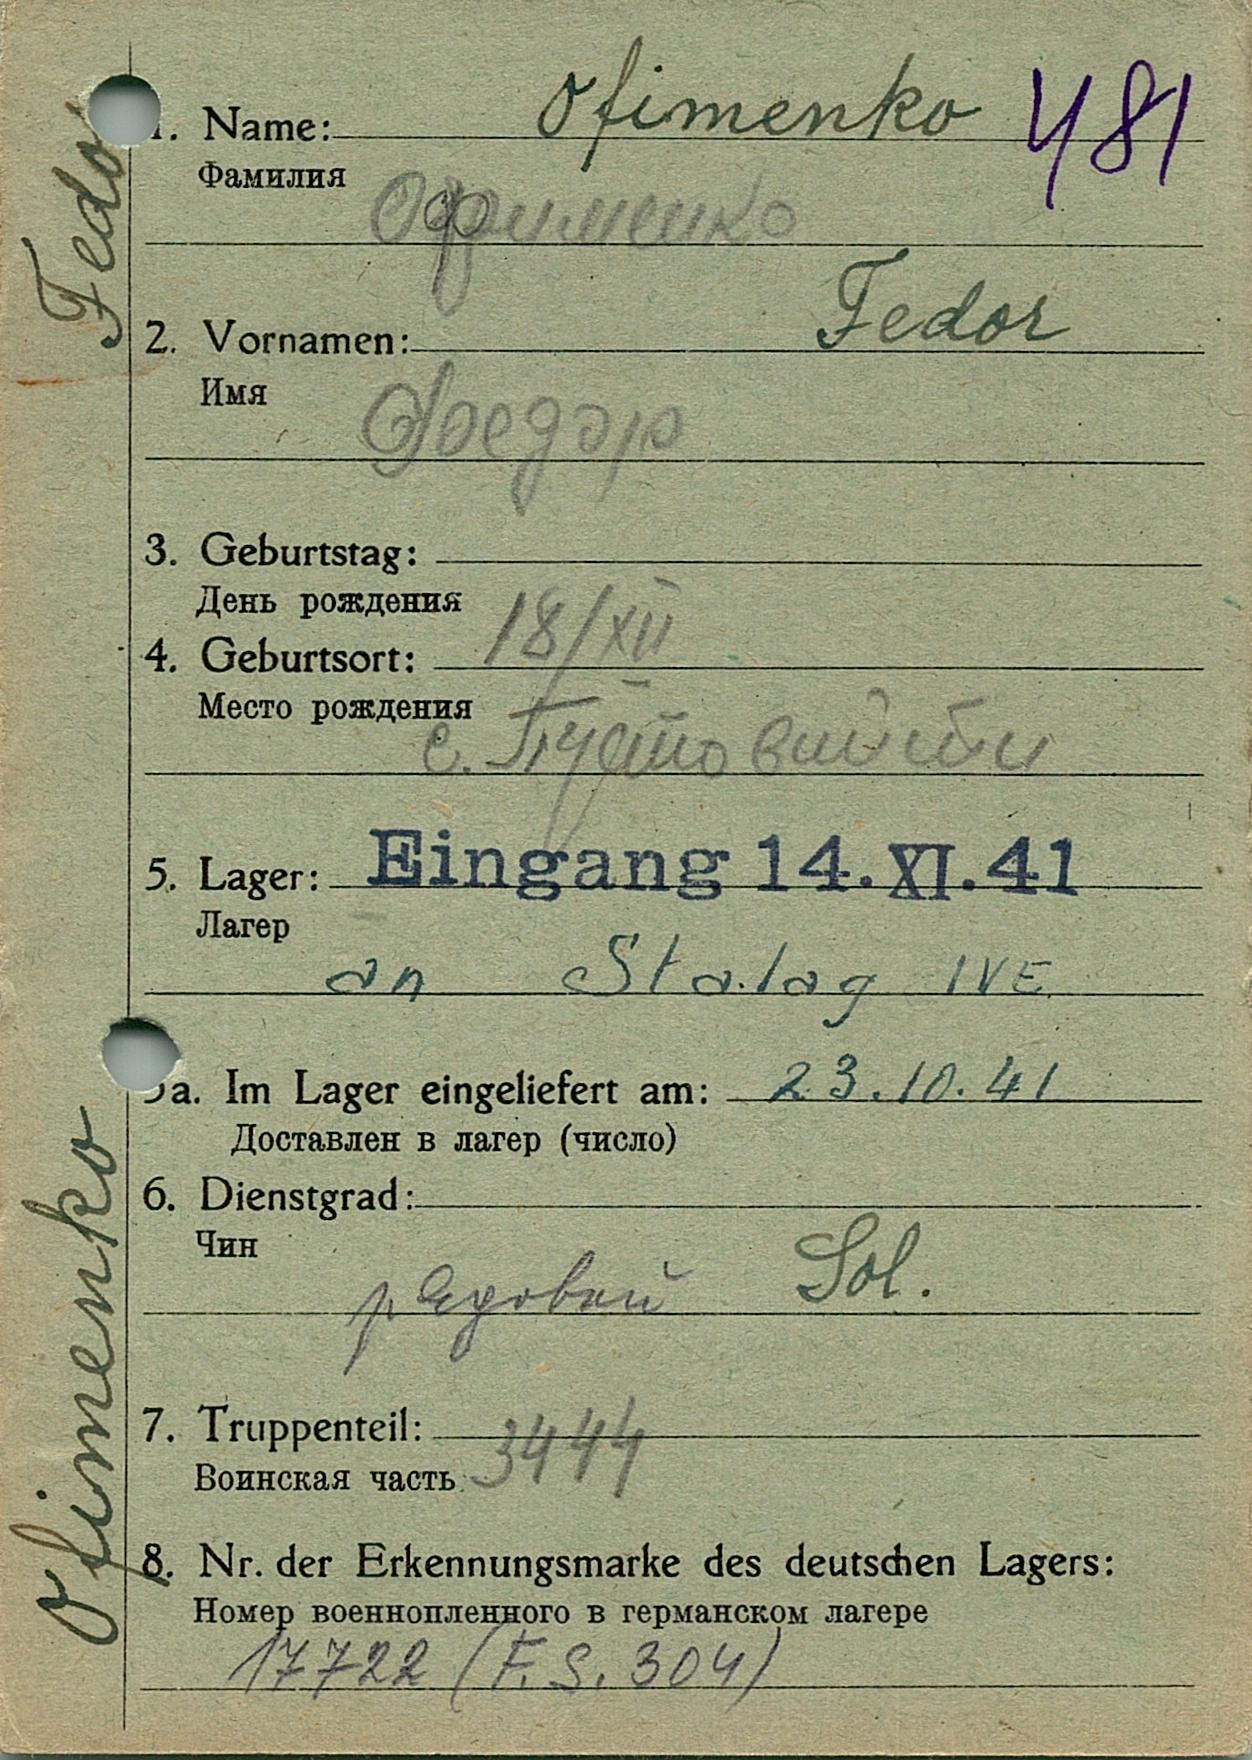 Fedor
Ofimenko
1. Name: Ofimenko 481
Фамилия
Офименко
2. Vornamen: Fedor
Имя
Федор
3. Geburtstag:
День рождения 18/XII
4. Geburtsort:
Место рождения
с.
5. Lager: Eingang 14.XI.41
Лагер
an Stalag IVE
5a. Im Lager eingeliefert am: 23.10.41
Доставлен в лагер (число)
6. Dienstgrad:
Чин
рядовой Sol.
7. Truppenteil:
Воинская часть 3444
8. Nr. der Erkennungsmarke des deutschen Lagers:
Номер военнопленного в германском лагере
17722 (F.S. 304)